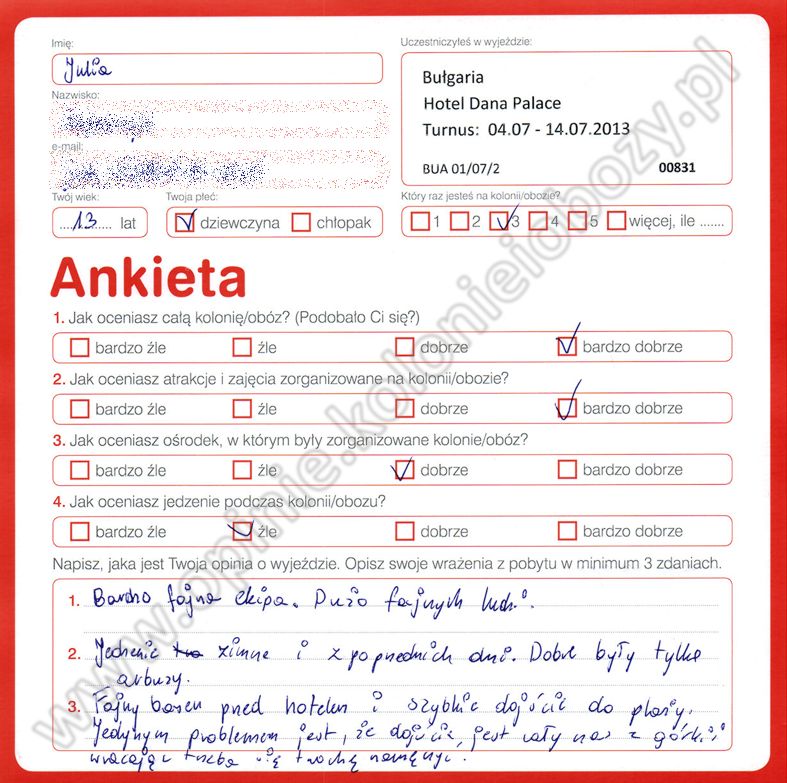 Imię:
Julia
Nazwisko:
e-mail:
Twój wiek:
13 lat
Twoja płeć:
dziewczyna chłopak
Uczestniczyłeś w wyjeździe:
Bułgaria
Hotel Dana Palace
Turnus: 04.07 - 14.07.2013
BUA 01/07/2 00831
Który raz jesteś na kolonii/obozie?
1 2 3 4 5 więcej, ile .......
Ankieta
1. Jak oceniasz całą kolonię/obóz? (Podobało Ci się?)
bardzo źle źle dobrze bardzo dobrze
2. Jak oceniasz atrakcje i zajęcia zorganizowane na kolonii/obozie?
bardzo źle źle dobrze bardzo dobrze
3. Jak oceniasz ośrodek, w którym były zorganizowane kolonie/obóz?
bardzo źle źle dobrze bardzo dobrze
4. Jak oceniasz jedzenie podczas kolonii/obozu?
bardzo źle źle dobrze bardzo dobrze
Napisz, jaka jest Twoja opinia o wyjeździe. Opisz swoje wrażenia z pobytu w minimum 3 zdaniach.
1. Bardzo fajna ekipa. Dużo fajnych ludzi.
2. Jedzenie zimne i z poprzednich dni. Dobre były tylko
arbuzy.
3. Fajny basen przed hotelem i szybkie dojście do plaży.
Jedynym problemem jest, że dojście, jest cały czas z górki i
wracając trzeba się trochę namęczyć.
www.opinie.kolonieiobozy.pl